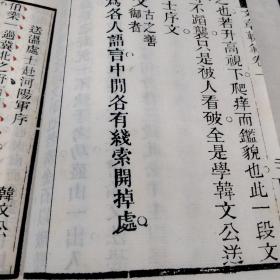 也若升高視下爬痒而鑑貌也此一段文
不蹈襲只是彼人看破全是學韓文公送
士序文
古之善
文御者
爲各人語言中間各有綫索開掉處
送溫處士赴河陽軍序
韓文公
伯樂一過冀北之野